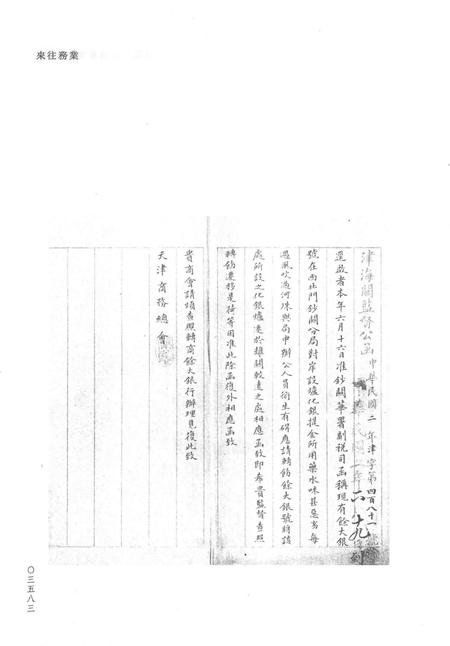 業務往來
津海關監督公函 中華民國二年津字第四百八十一號
逕啟者本年六月十六日准鈔關華署副稅司函稱現有餘大銀
號在西北門鈔關分局對岸設爐化銀提金所用藥水味甚惡劣每
遇風吹過河殊與局中辦公人員衛生有碍應請轉飭餘大銀號將該
處所設之化銀爐遷於離關較遠之處相應函致即希貴監督查照
轉飭遷移是荷等因准此除函復外相應函致
貴商會請煩查照轉商餘大銀行辦理見復此致
天津商務總會
〇三五八三